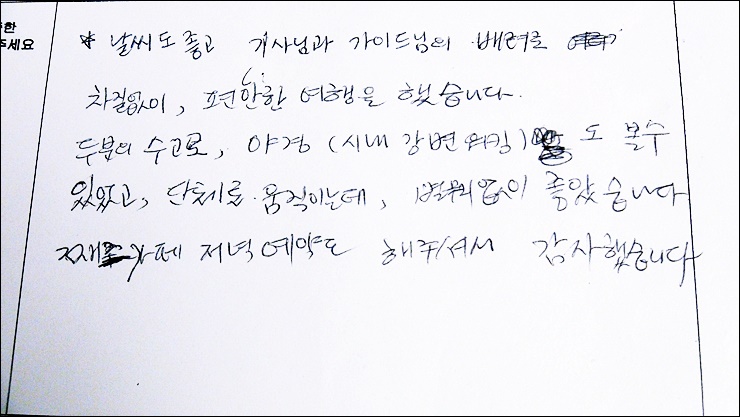 한
주세요
* 날씨도 좋고 기사님과 가이드님의 배려로
차질없이, 편안한 여행을 했습니다.
두분의 수고로, 야경 (시내 강변 워킹) 도 볼수
있었고, 단체로 움직이는데, 없이 좋았습니다
저녁 예약도 해주셔서 감사했습니다